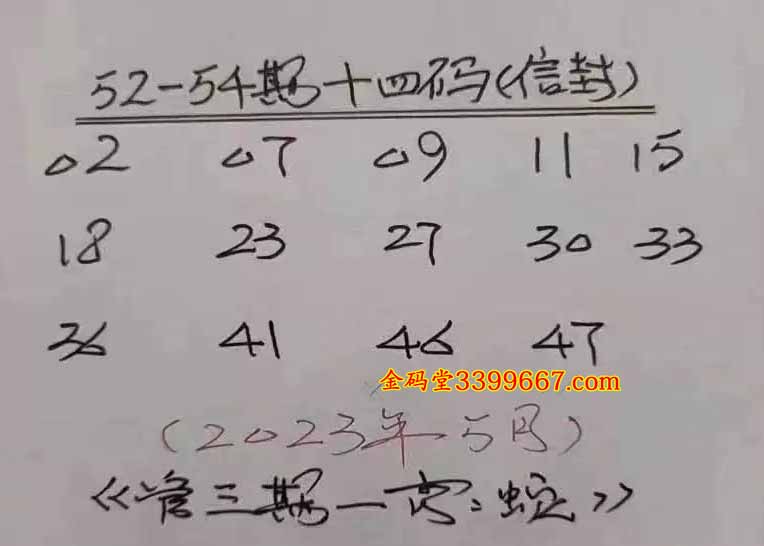 52-54期十四码(信封)
02 07 09 11 15
18 23 27 30 33
36 41 46 47
金码堂3399667.com
(2023年5月)
《管三期一肖:蛇》